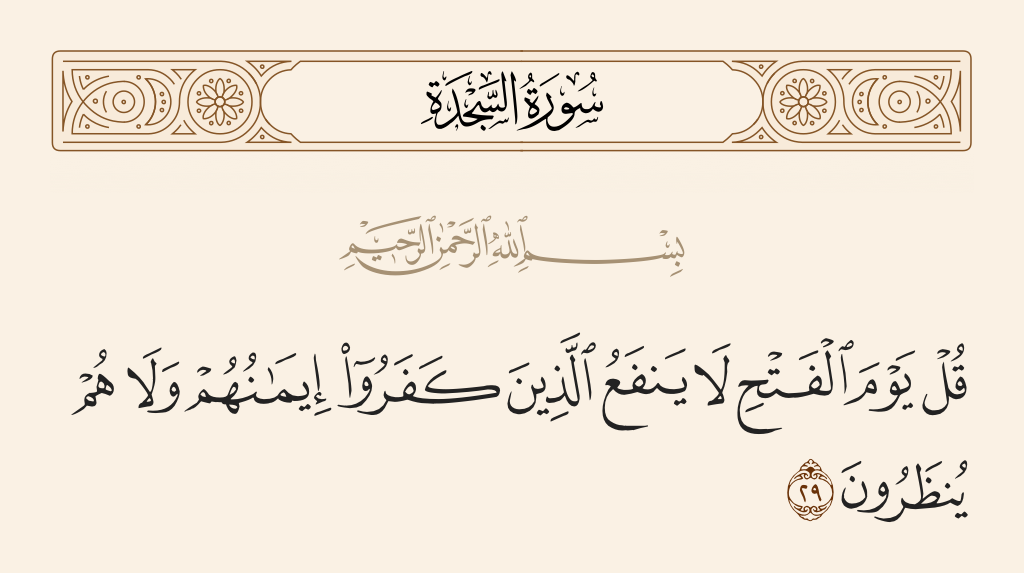 سُورَةُ السَّجْدَةِ
بِسْمِ ٱللَّهِ ٱلرَّحْمَٰنِ ٱلرَّحِيمِ
قُلْ يَوْمَ ٱلْفَتْحِ لَا يَنفَعُ ٱلَّذِينَ كَفَرُوٓا۟ إِيمَٰنُهُمْ وَلَا هُمْ
يُنظَرُونَ ٢٩